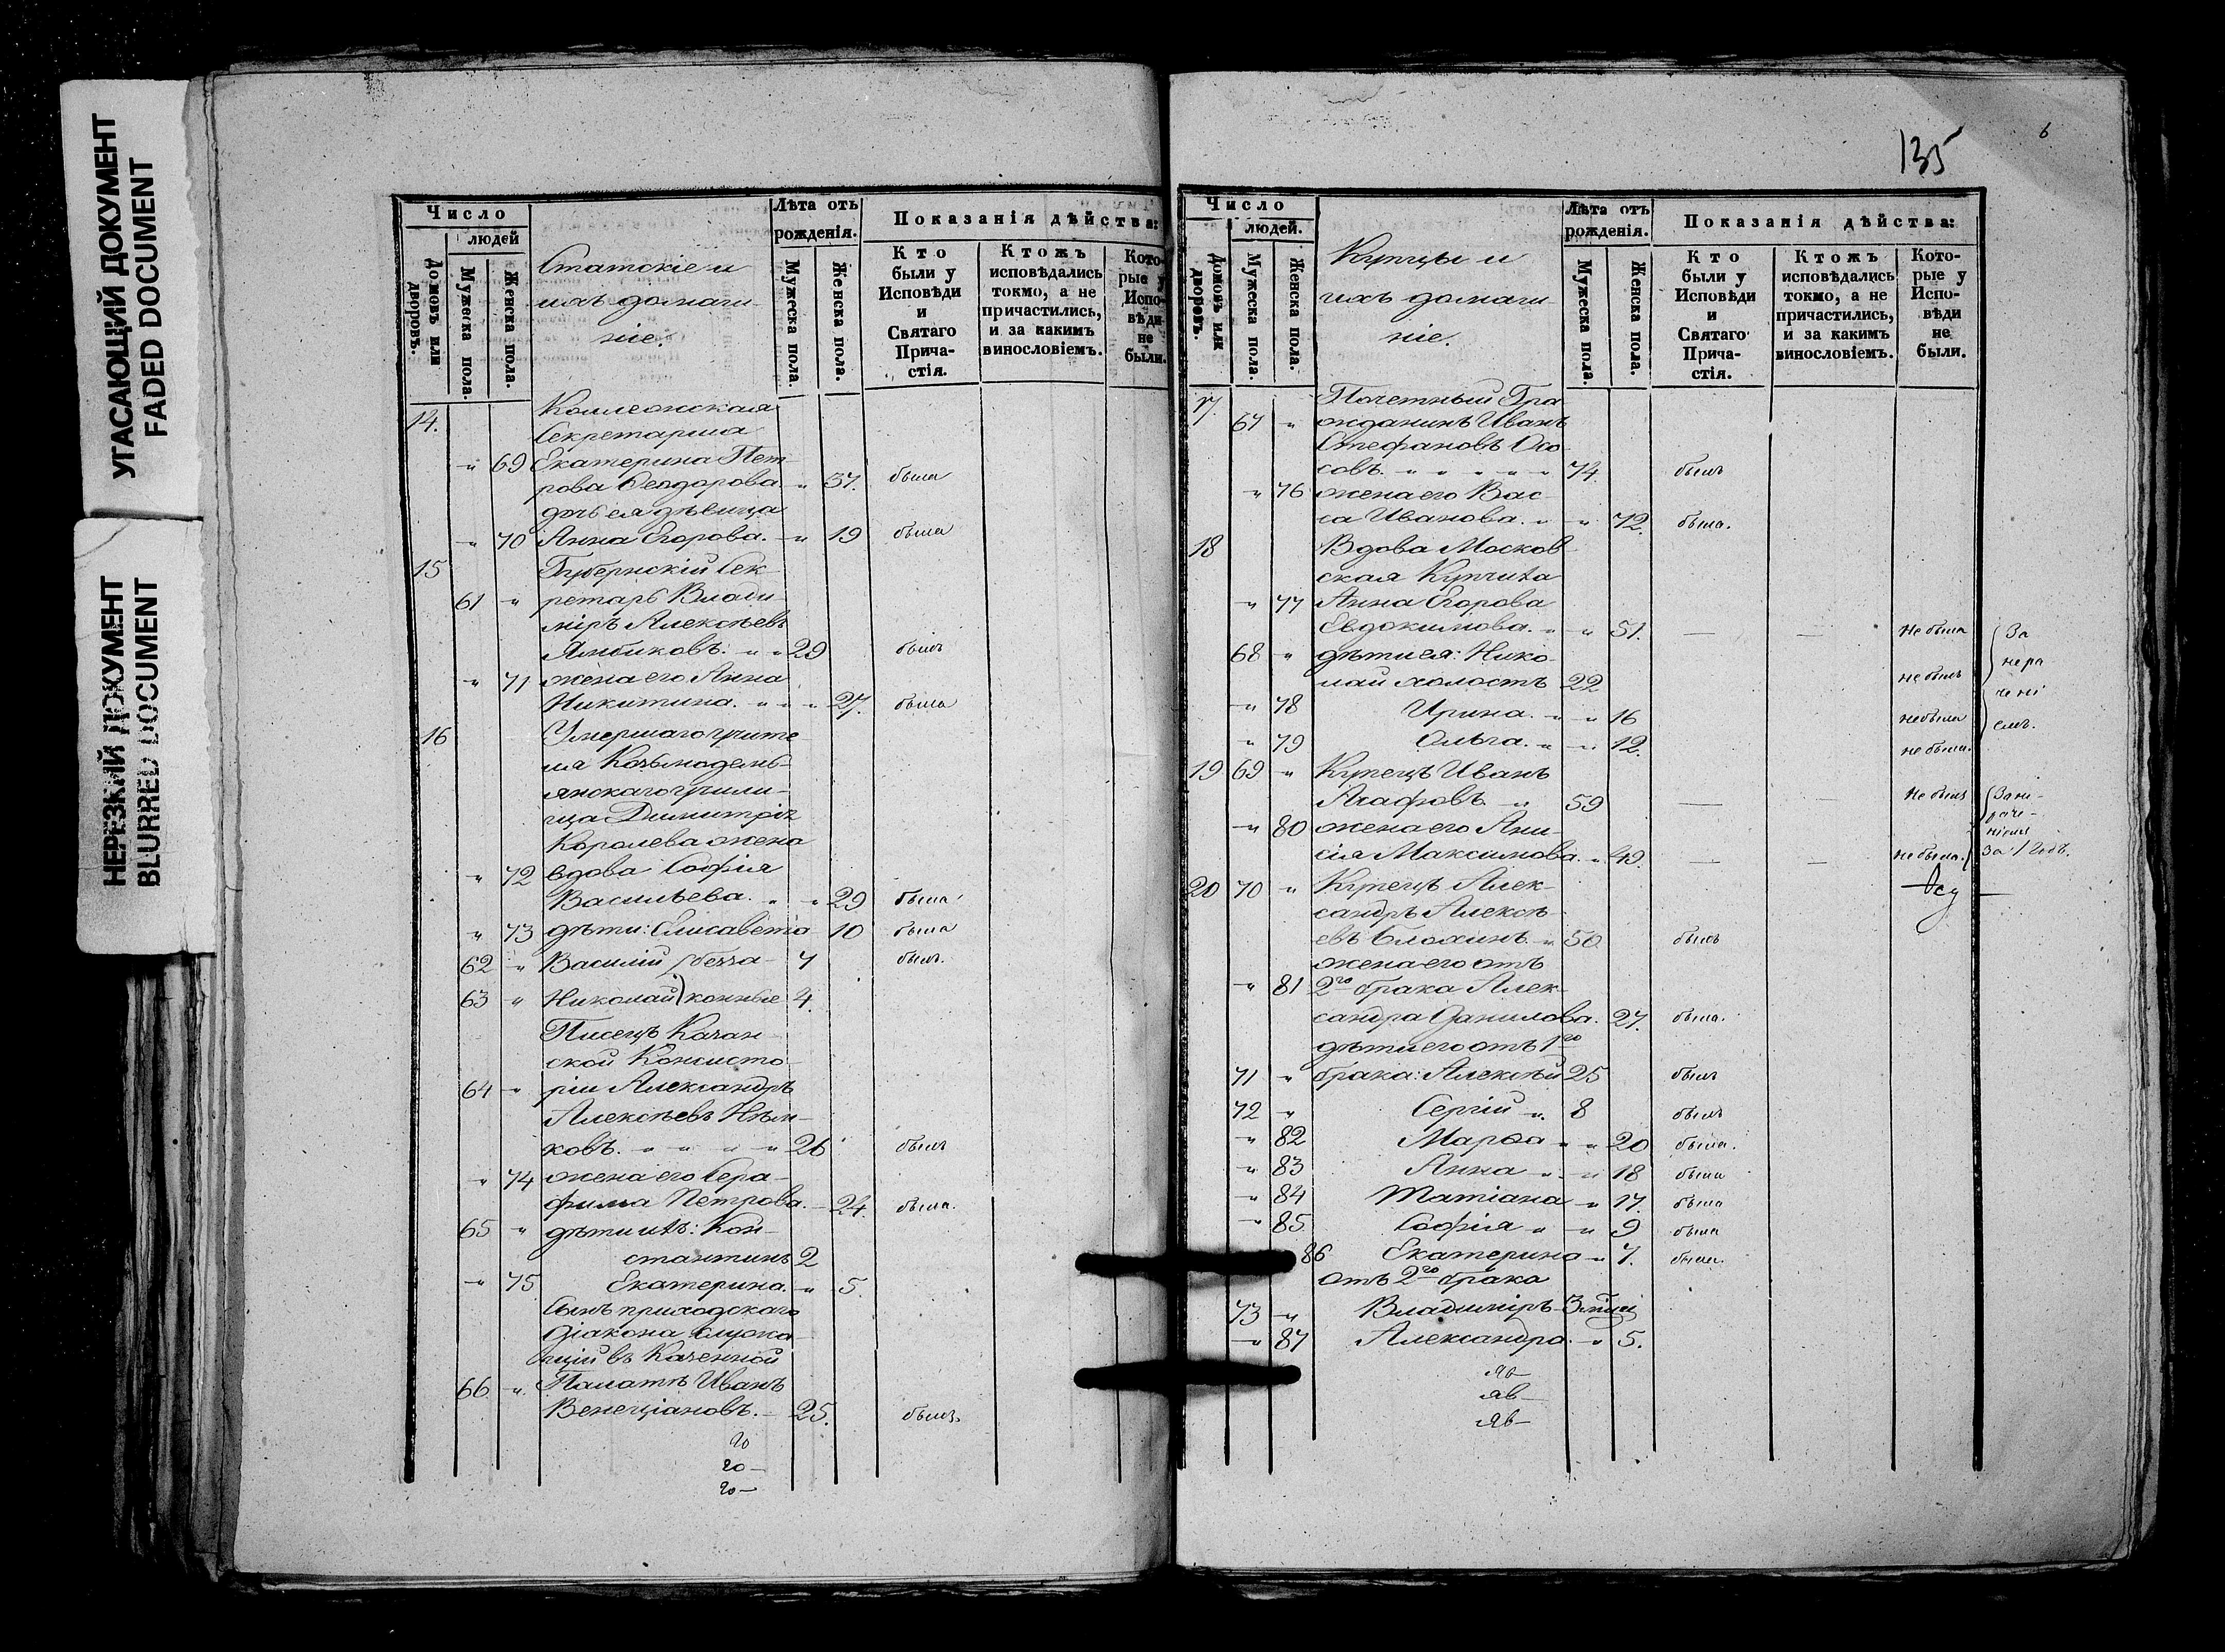 УГАСАЮЩИЙ ДОКУМЕНТ
FADED DOCUMENT
НЕРЕЗКИЙ ДОКУМЕНТ
BLURRED DOCUMENT
Число
людей
Домовъ или дворовъ.
Мужеска пола.
Женска пола.
Статскіе и
ихъ домаш-
ніе.
Лѣта отъ рожденія.
Мужеска пола.
Женска пола.
Показанія дѣйства:
Кто были у Исповѣди и Святаго Прича-стія.
Ктожъ исповѣдались токмо, а не причастились, и за какимъ винословіемъ.
Кото-рые у Испо-вѣди не были.
14. Коллежская
Секретарша
" 69 Екатерина Пет-
рова Ѳеодорова. " 37. была
дчь ея дѣвица
" 70 Анна Егорова. " 19 была
15 Губернскій Сек-
61 " ретарь Влади-
міръ Алексѣевъ
" " 29 былъ
" 71 жена его Анна
Никитина. " " " 27. была
16 Умершаго учите
ля Козьмодемь-
янскаго учили-
ща Димитрія
Королева жена
" 72 вдова Софія
Васильева. " " 29 была
" 73 дѣти: Елисавета 10 была
62 " Василій 7 былъ.
63 " Николай 4.
Писецъ Казан-
ской Консисто-
64 " ріи Александръ
Алексѣевъ
ковъ. " " " " 26 былъ
" 74 жена его Сера-
фима Петрова. 24. была.
65 " дѣти ихъ: Кон-
стантинъ 2
" 75. Екатерина. " 5.
Сынъ приходскаго
діакона служа-
щій въ Казенной
66. " Палатѣ Иванъ
Венеціановъ. 25. былъ.
135
6
Число
людей.
Домовъ или дворовъ.
Мужеска пола.
Женска пола.
Купцы и
ихъ домаш-
ніе.
Лѣта отъ рожденія.
Мужеска пола.
Женска пола.
Показанія дѣйства:
Кто были у Исповѣди и Святаго Прича-стія.
Ктожъ исповѣдались токмо, а не причастились, и за какимъ винословіемъ.
Кото-рые у Испо-вѣди не были.
17. Почетный Гра
67 " жданинъ Иванъ
Стефановъ Осо-
совъ. " " " " " 74. былъ
" 76 жена его Вас-
са Иванова. " " 72. была.
18 Вдова Москов-
ская Купчиха
" 77 Анна Егорова
Евдокимова. " " 51. — — Не была За
68 " дѣти ея: Нико-
лай холостъ 22 не былъ нера
" 78 Ирина. " " 16 не была чені
" 79 Ольга. " " 12. не была. емъ.
19 69 " Купецъ Иванъ
Агафовъ " 59 — — Не былъ
" 80 жена его Ани-
сія Максимова. " 49. — — не была. За 1 годъ.
20 70 " Купецъ Алек-
сандръ Алексѣ-
евъ Блохинъ. " 50 былъ
жена его отъ
" 81 2го брака Алек-
сандра Данилова. 27. была.
дѣти его отъ 1го
71 " брака: Алексѣй 25 былъ
72 " Сергій " 8 былъ
" 82 Марѳа " " 20 была.
" 83 Анна " " 18 была
" 84 Татіана " 17. была
" 85 Софія " " 9 была
86 Екатерина " 7. была.
отъ 2го брака
73 " Владиміръ 3
" 87 Александра. " 5.